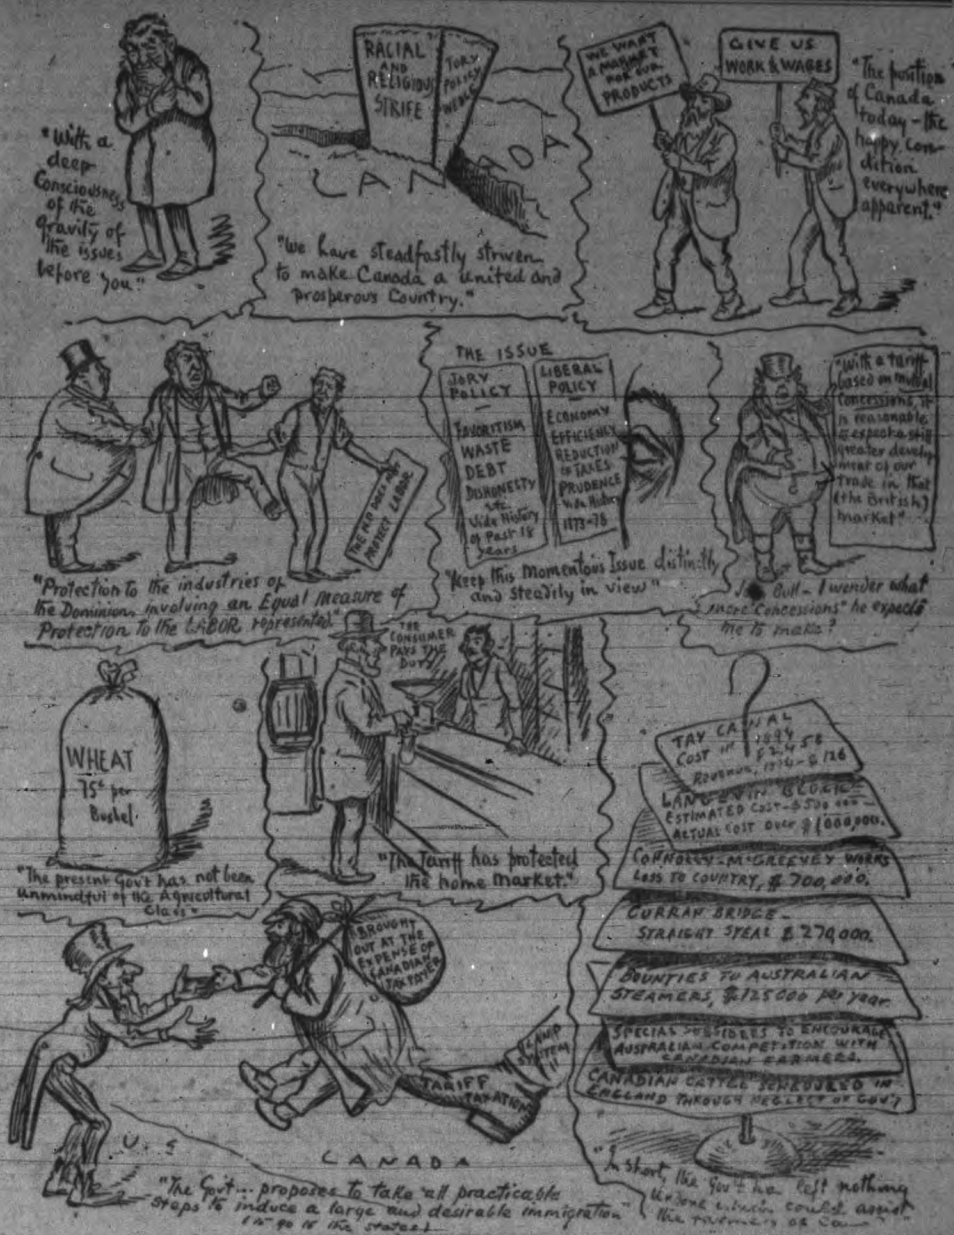 "With a
deep
Consciousness
of the
gravity of
the issues
before you"
RACIAL
AND
RELIGIOUS
STRIFE
TORY
POLICY
WEDGE
CANADA
"We have steadfastly striven
to make Canada a united and
prosperous Country."
WE WANT
A MARKET
FOR OUR
PRODUCTS
GIVE US
WORK & WAGES
"The position
of Canada
today - the
happy con-
dition
everywhere
apparent."
THE N.P. DOES NOT
PROTECT LABOR
"Protection to the industries of
the Dominion, involving an Equal Measure of
Protection To the LABOR represented"
THE ISSUE
TORY
POLICY
FAVORITISM
WASTE
DEBT
DISHONESTY
etc
Vide History
of Past 18
years
LIBERAL
POLICY
ECONOMY
EFFICIENCY
REDUCTION
OF TAXES
PRUDENCE
Vide History
1873-78
"Keep this Momentous Issue distinctly
and steadily in view"
"With a tariff
based on mutual
concessions, it
is reasonable
to expect a still
greater develop
ment of our
trade in that
(the British)
market"
Bull - I wonder what
"more Concessions" he expects
me to make?
WHEAT
75¢ per
Bushel
"The present Gov't has not been
unmindful of the Agricultural
Class"
THE
CONSUMER
PAYS THE
DUTY
"The Tariff has protected
the home market."
TAY CANAL
COST IN 1894
$2458
REVENUE, 1894 - $126
LANGEVIN BLOCK -
ESTIMATED COST - $500 000 -
ACTUAL COST OVER $1000,000.
CONNOLLY-McGREEVEY WORKS
LOSS TO COUNTRY, $700,000.
CURRAN BRIDGE -
STRAIGHT STEAL $270,000.
BOUNTIES TO AUSTRALIAN
STEAMERS, $125000 per year.
SPECIAL SUBSIDIES TO ENCOURAGE
AUSTRALIAN COMPETITION WITH
CANADIAN FARMERS.
CANADIAN CATTLE SCHEDULED IN
ENGLAND THROUGH NEGLECT OF GOV'T
"In short, the Gov't has left nothing
undone which could assist
the farmers of
BROUGHT
OUT AT THE
EXPENSE OF
CANADIAN
TAXPAYER
TARIFF
TAXATION
SYSTEM
U.S
CANADA
"The Gov't... proposes to take all practicable
Steps to induce a large and desirable immigration"
(to go to the states)